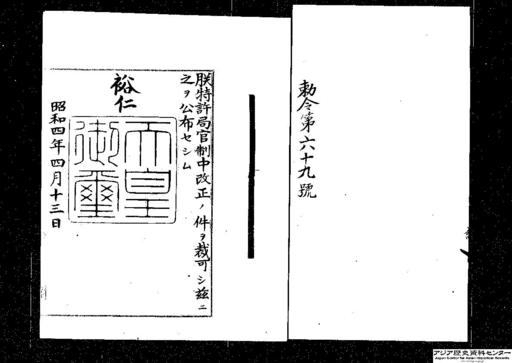 勅令第六十九號
朕特許局官制中改正ノ件ヲ裁可シ茲ニ
之ヲ公布セシム
裕仁
天皇
御璽
昭和四年四月十三日
アジア歴史資料センター
Japan Center for Asian Historical Records